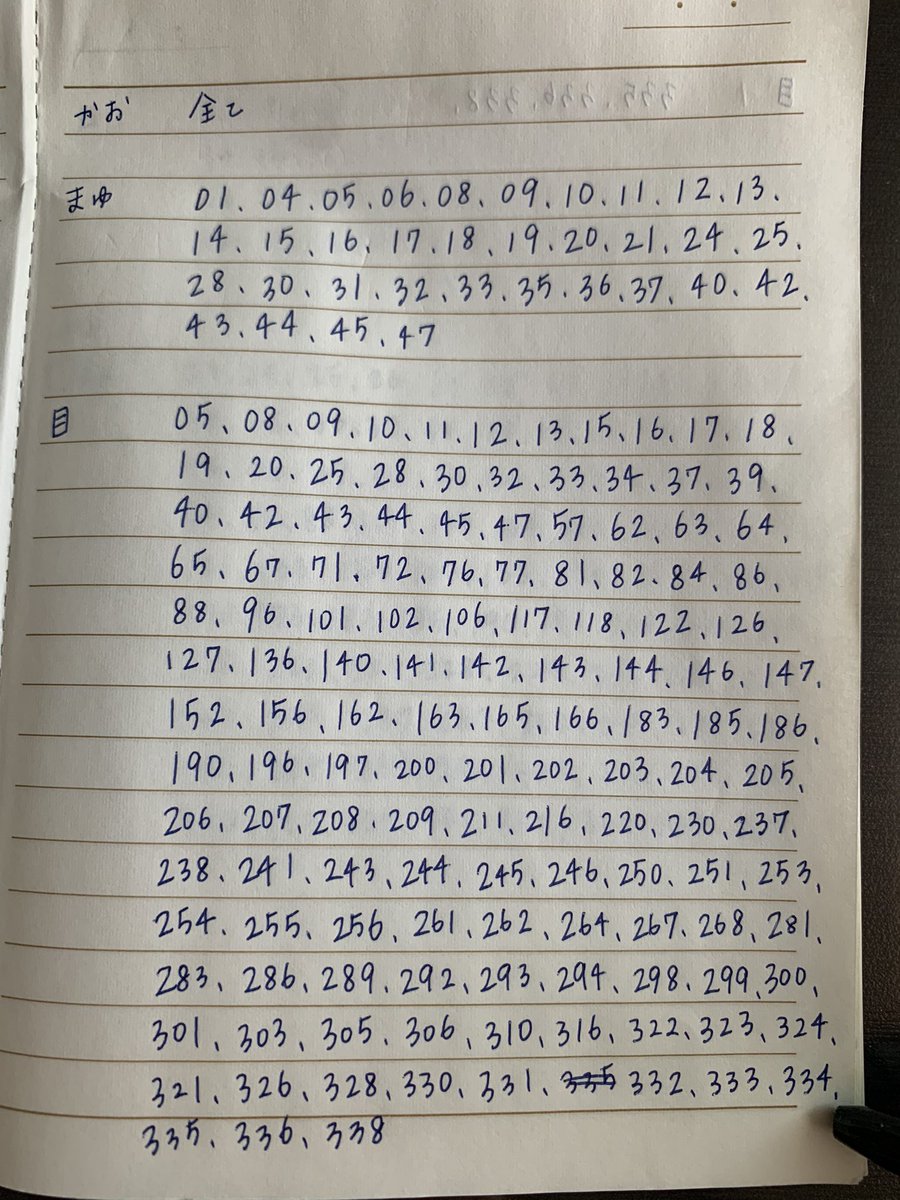 かお 全て
まゆ 01、04、05、06、08、09、10、11、12、13、
14、15、16、17、18、19、20、21、24、25、
28、30、31、32、33、35、36、37、40、42、
43、44、45、47
目 05、08、09、10、11、12、13、15、16、17、18、
19、20、25、28、30、32、33、34、37、39、
40、42、43、44、45、47、57、62、63、64、
65、67、71、72、76、77、81、82、84、86、
88、96、101、102、106、117、118、122、126、
127、136、140、141、142、143、144、146、147、
152、156、162、163、165、166、183、185、186、
190、196、197、200、201、202、203、204、205、
206、207、208、209、211、216、220、230、237、
238、241、243、244、245、246、250、251、253、
254、255、256、261、262、264、267、268、281、
283、286、289、292、293、294、298、299、300、
301、303、305、306、310、316、322、323、324、
321、326、328、330、331、335 332、333、334、
335、336、338